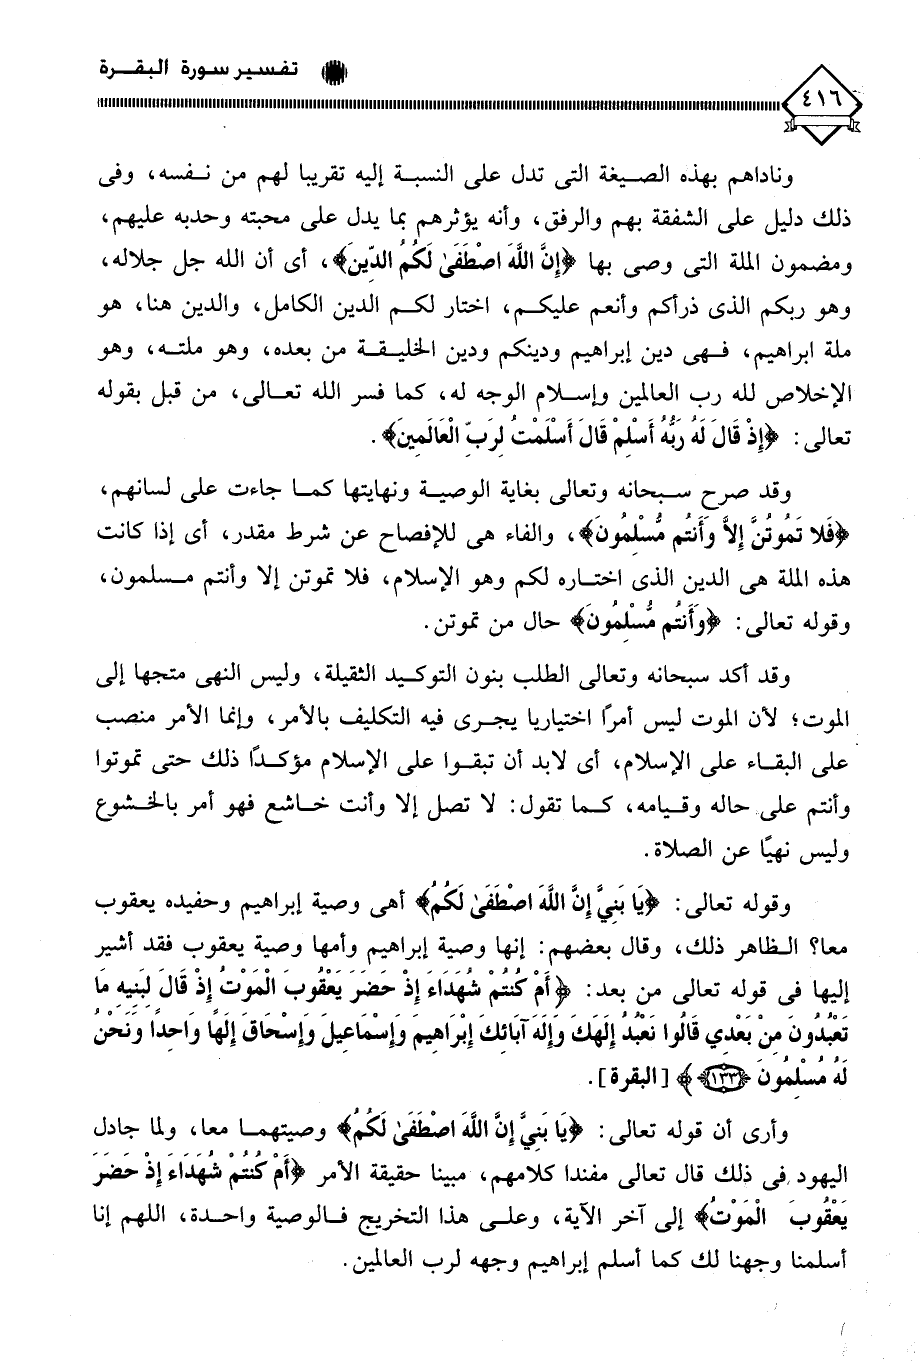 تفسير سورة البقرة
٤١٦
وناداهم بهذه الصيغة التى تدل على النسبة إليه تقريبا لهم من نفسه، وفى
ذلك دليل على الشفقة بهم والرفق، وأنه يؤثرهم بما يدل على محبته وحدبه عليهم،
ومضمون الملة التى وصى بها ﴿إِنَّ اللَّهَ اصْطَفَىٰ لَكُمُ الدِّينَ﴾، أى أن الله جل جلاله،
وهو ربكم الذى ذرأكم وأنعم عليكم، اختار لكم الدين الكامل، والدين هنا، هو
ملة ابراهيم، فهى دين إبراهيم ودينكم ودين الخليقة من بعده، وهو ملته، وهو
الإخلاص لله رب العالمين وإسلام الوجه له، كما فسر الله تعالى، من قبل بقوله
تعالى: ﴿إِذْ قَالَ لَهُ رَبُّهُ أَسْلِمْ قَالَ أَسْلَمْتُ لِرَبِّ الْعَالَمِينَ﴾.
وقد صرح سبحانه وتعالى بغاية الوصية ونهايتها كما جاءت على لسانهم،
﴿فَلا تَمُوتُنَّ إِلاَّ وَأَنتُم مُّسْلِمُونَ﴾، والفاء هى للإفصاح عن شرط مقدر، أى إذا كانت
هذه الملة هى الدين الذى اختاره لكم وهو الإسلام، فلا تموتن إلا وأنتم مسلمون،
وقوله تعالى: ﴿وَأَنتُم مُّسْلِمُونَ﴾ حال من تموتن.
وقد أكد سبحانه وتعالى الطلب بنون التوكيد الثقيلة، وليس النهى متجها إلى
الموت؛ لأن الموت ليس أمرًا اختياريا يجرى فيه التكليف بالأمر، وإنما الأمر منصب
على البقاء على الإسلام، أى لابد أن تبقوا على الإسلام مؤكدًا ذلك حتى تموتوا
وأنتم على حاله وقيامه، كما تقول: لا تصل إلا وأنت خاشع فهو أمر بالخشوع
وليس نهيًا عن الصلاة.
وقوله تعالى: ﴿يَا بَنِيَّ إِنَّ اللَّهَ اصْطَفَىٰ لَكُمُ﴾ أهى وصية إبراهيم وحفيده يعقوب
معا؟ الظاهر ذلك، وقال بعضهم: إنها وصية إبراهيم وأمها وصية يعقوب فقد أشير
إليها فى قوله تعالى من بعد: ﴿أَمْ كُنتُمْ شُهَدَاءَ إِذْ حَضَرَ يَعْقُوبَ الْمَوْتُ إِذْ قَالَ لِبَنِيهِ مَا
تَعْبُدُونَ مِنْ بَعْدِي قَالُوا نَعْبُدُ إِلَهَكَ وَإِلَهَ آبَائِكَ إِبْرَاهِيمَ وَإِسْمَاعِيلَ وَإِسْحَاقَ إِلَهًا وَاحِدًا وَنَحْنُ
لَهُ مُسْلِمُونَ ﴿١٣٣﴾﴾ [البقرة].
وأرى أن قوله تعالى: ﴿يَا بَنِيَّ إِنَّ اللَّهَ اصْطَفَىٰ لَكُمُ﴾ وصيتهما معا، ولما جادل
اليهود فى ذلك قال تعالى مفندا كلامهم، مبينا حقيقة الأمر ﴿أَمْ كُنتُمْ شُهَدَاءَ إِذْ حَضَرَ
يَعْقُوبَ الْمَوْتُ﴾ إلى آخر الآية، وعلى هذا التخريج فالوصية واحدة، اللهم إنا
أسلمنا وجهنا لك كما أسلم إبراهيم وجهه لرب العالمين.